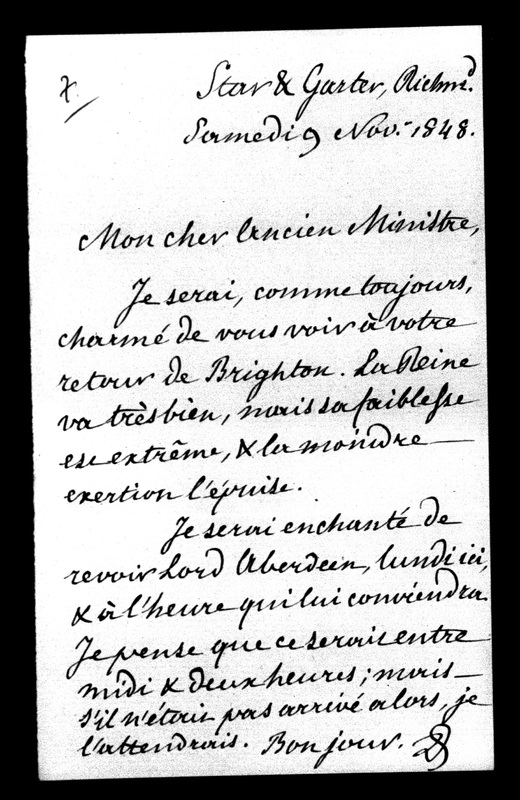 Star & Garter, Richmd.
Samedi 9 Nov. 1848.
Mon cher Ancien Ministre,
Je serai, comme toujours,
charmé de vous voir à votre
retour de Brighton. La Reine
va très bien, mais sa faiblesse
est extrême, & la moindre
exertion l'épuise.
Je serai enchanté de
revoir Lord Aberdeen, lundi ici,
& à l'heure qui lui conviendra.
Je pense que ce serait entre
midi & deux heures; mais
s'il n'était pas arrivé alors, je
l'attendrais. Bonjour.